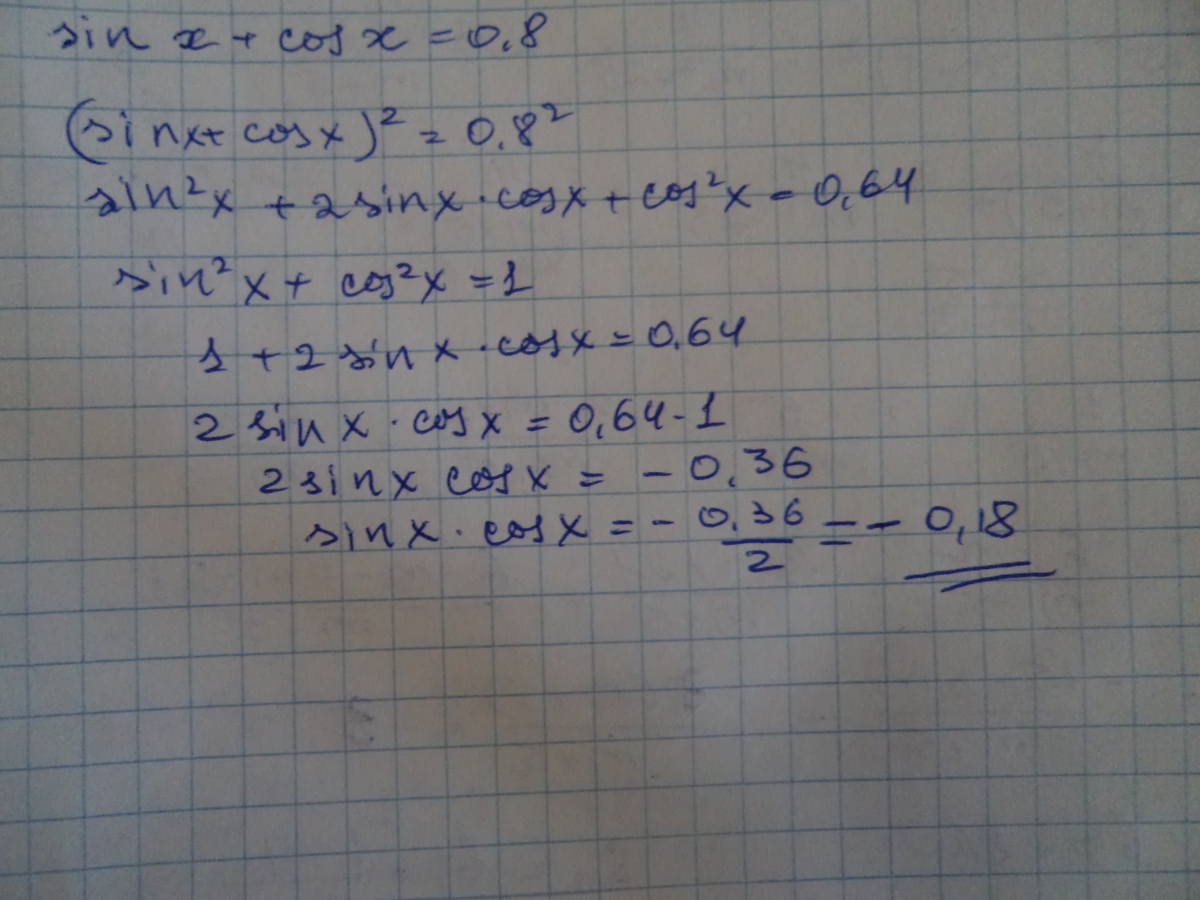 sin x + cos x = 0,8
(sinx + cosx)² = 0,8²
sin²x + 2sinx · cosx + cos²x = 0,64
sin²x + cos²x = 1
1 + 2 sin x · cosx = 0,64
2 sin x · cosx = 0,64 - 1
2sinx cosx = - 0,36
sinx · cosx = - 0,36/2 = - 0,18